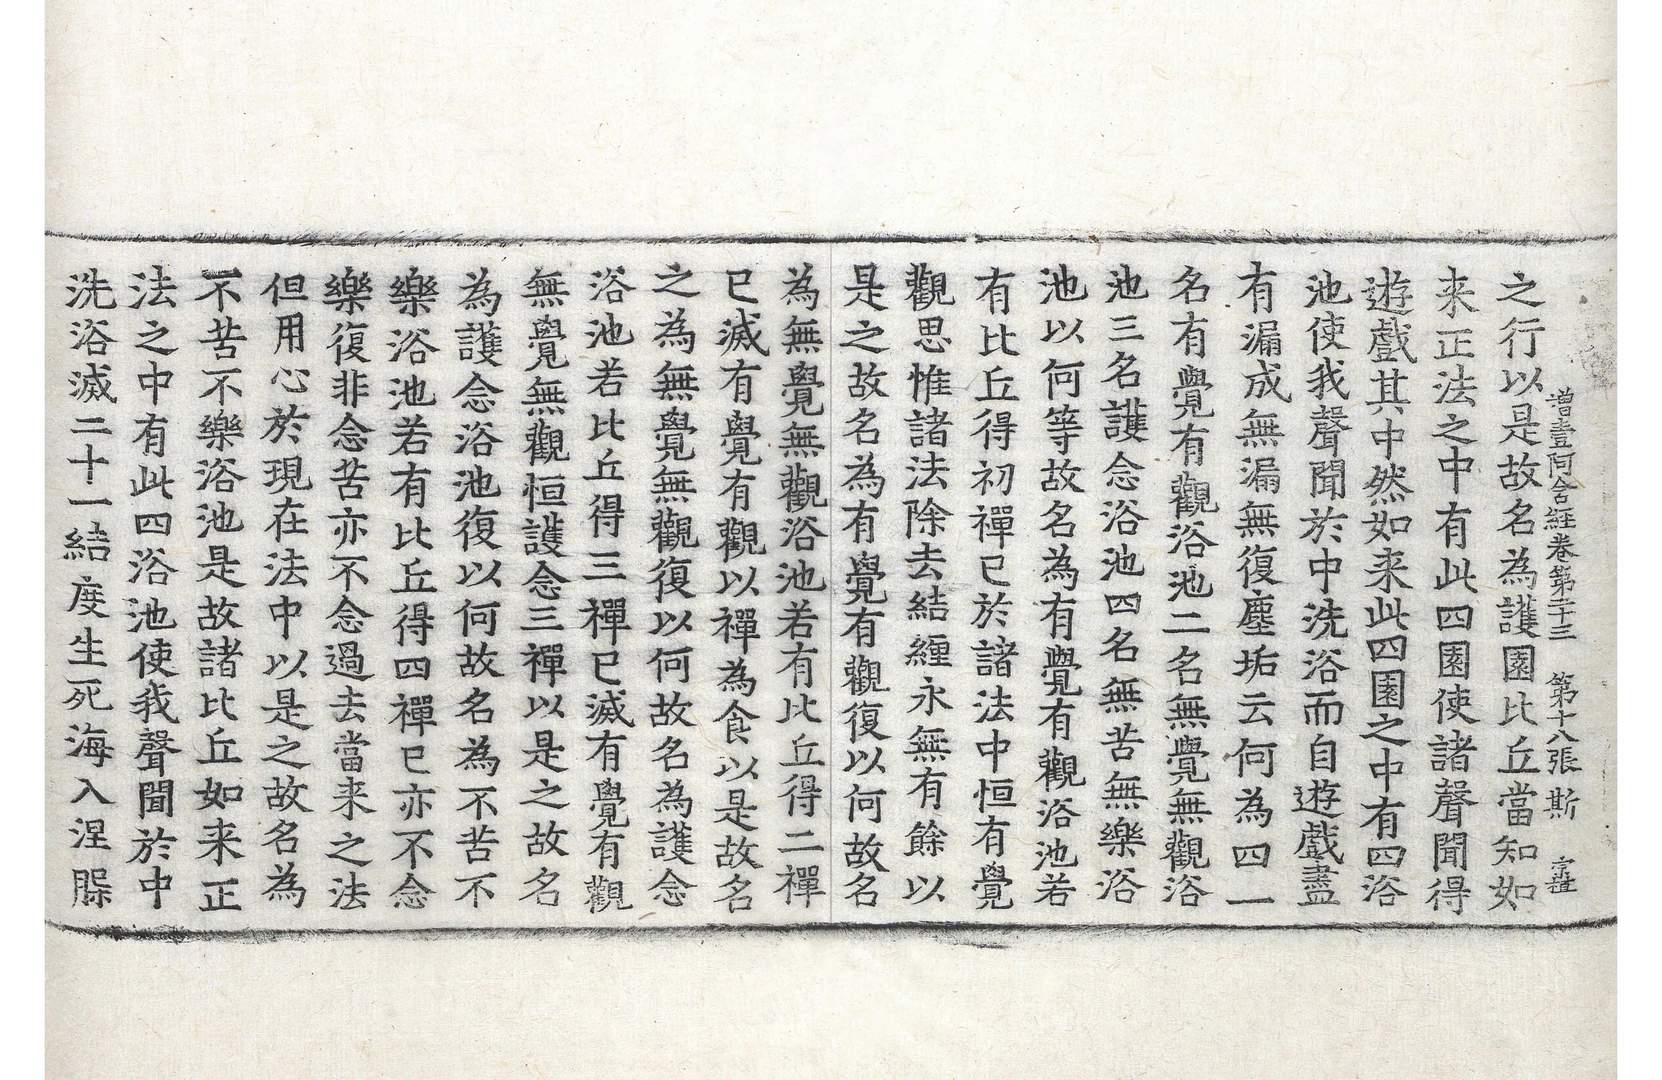 增壹阿含經卷第二十三　第十八張　斯
之行以是故名為護園比丘當知如
来正法之中有此四園使諸聲聞得
遊戲其中然如来此四園之中有四浴
池使我聲聞於中洗浴而自遊戲盡
有漏成無漏無復塵垢云何為四一
名有覺有觀浴池二名無覺無觀浴
池三名護念浴池四名無苦無樂浴
池以何等故名為有覺有觀浴池若
有比丘得初禪已於諸法中恒有覺
觀思惟諸法除去結纏永無有餘以
是之故名為有覺有觀復以何故名
為無覺無觀浴池若有比丘得二禪
已滅有覺有觀以禪為食以是故名
之為無覺無觀復以何故名為護念
浴池若比丘得三禪已滅有覺有觀
無覺無觀恒護念三禪以是之故名
為護念浴池復以何故名為不苦不
樂浴池若有比丘得四禪已亦不念
樂復非念苦亦不念過去當来之法
但用心於現在法中以是之故名為
不苦不樂浴池是故諸比丘如来正
法之中有此四浴池使我聲聞於中
洗浴滅二十一結度生死海入涅腺